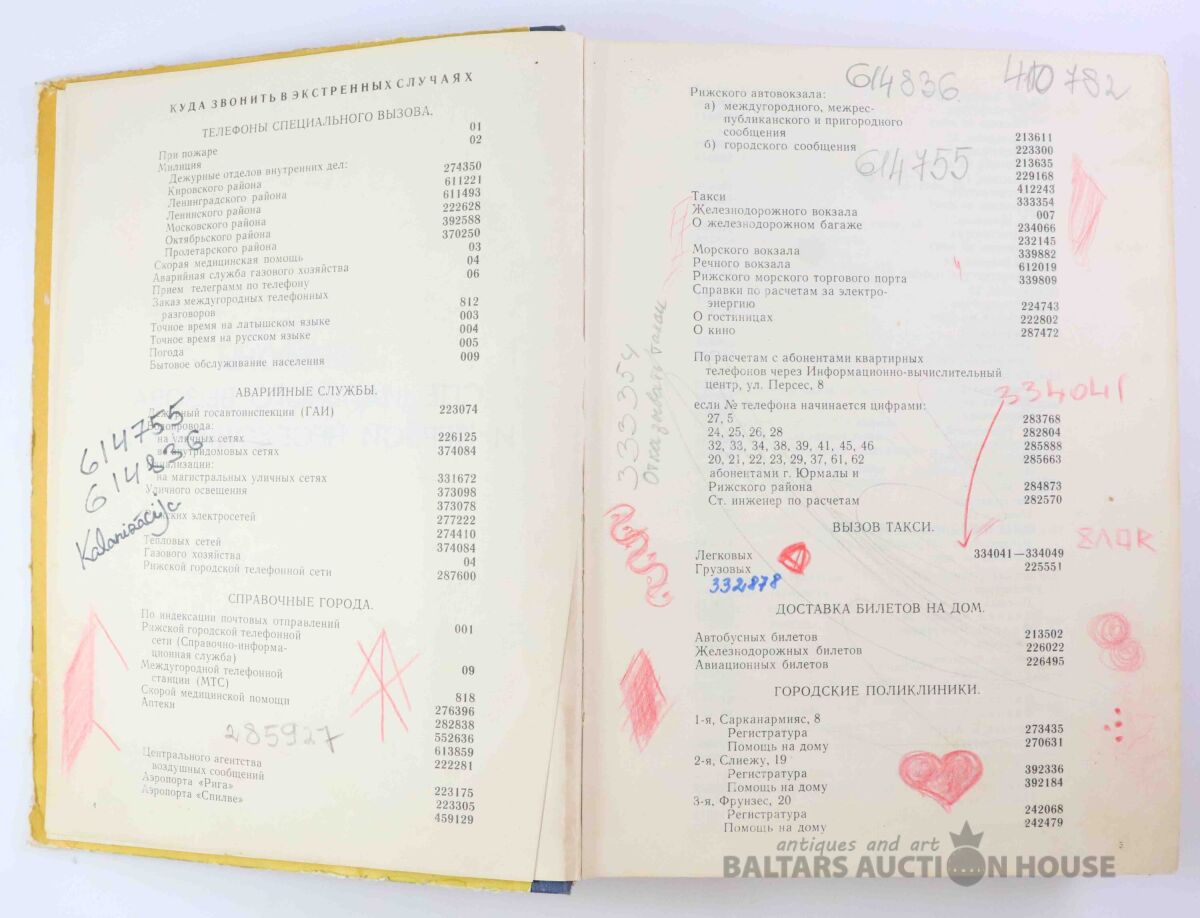 КУДА ЗВОНИТЬ В ЭКСТРЕННЫХ СЛУЧАЯХ
ТЕЛЕФОНЫ СПЕЦИАЛЬНОГО ВЫЗОВА.
При пожаре 01
Милиция 02
Дежурные отделов внутренних дел:
Кировского района 274350
Ленинградского района 611221
Ленинского района 611493
Московского района 222628
Октябрьского района 392588
Пролетарского района 370250
Скорая медицинская помощь 03
Аварийная служба газового хозяйства 04
Прием телеграмм по телефону 06
Заказ междугородных телефонных
разговоров 812
Точное время на латышском языке 003
Точное время на русском языке 004
Погода 005
Бытовое обслуживание населения 009
АВАРИЙНЫЕ СЛУЖБЫ.
Дежурный госавтоинспекции (ГАИ) 223074
Водопровода:
на уличных сетях 226125
на внутридомовых сетях 374084
Канализации:
на магистральных уличных сетях 331672
Уличного освещения 373098
373078
электросетей 277222
274410
Тепловых сетей 374084
Газового хозяйства 04
Рижской городской телефонной сети 287600
614755
614836
Kalanizācija
СПРАВОЧНЫЕ ГОРОДА.
По индексации почтовых отправлений 001
Рижской городской телефонной
сети (Справочно-информа-
ционная служба) 09
Междугородной телефонной
станции (МТС) 818
Скорой медицинской помощи 276396
Аптеки 282838
552636
285927
613859
Центрального агентства 222281
воздушных сообщений
223175
Аэропорта «Рига» 223305
Аэропорта «Спилве» 459129
614836 410782
Рижского автовокзала:
а) междугородного, межрес-
публиканского и пригородного
сообщения 213611
б) городского сообщения 223300
213635
614755
229168
412243
Такси 333354
Железнодорожного вокзала 007
О железнодорожном багаже 234066
232145
Морского вокзала 339882
Речного вокзала 612019
Рижского морского торгового порта 339809
Справки по расчетам за электро-
энергию 224743
О гостиницах 222802
О кино 287472
333354
По расчетам с абонентами квартирных
телефонов через Информационно-вычислительный
центр, ул. Персес, 8
334041
если № телефона начинается цифрами:
27, 5 283768
24, 25, 26, 28 282804
32, 33, 34, 38, 39, 41, 45, 46 285888
20, 21, 22, 23, 29, 37, 61, 62 285663
абонентами г. Юрмалы и
Рижского района 284873
Ст. инженер по расчетам 282570
ВЫЗОВ ТАКСИ.
Легковых 334041—334049
Грузовых 225551
332878
ДОСТАВКА БИЛЕТОВ НА ДОМ.
Автобусных билетов 213502
Железнодорожных билетов 226022
Авиационных билетов 226495
ГОРОДСКИЕ ПОЛИКЛИНИКИ.
1-я, Сарканармияс, 8
Регистратура 273435
Помощь на дому 270631
2-я, Слиежу, 19
Регистратура 392336
Помощь на дому 392184
3-я, Фрунзес, 20
Регистратура 242068
Помощь на дому 242479
5
antiques and art
BALTARS AUCTION HOUSE